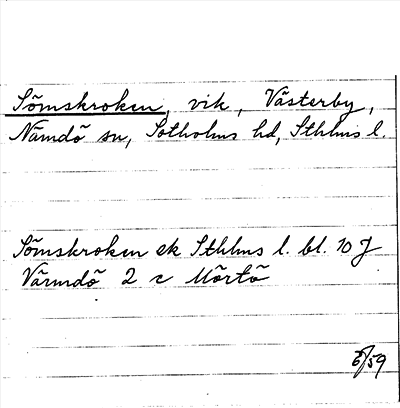 Sömskroken, vik, Västerby,
Nämdö sn, Sotholms hd, Sthlms l.
Sömskroken ek Sthlms l. bl. 10 J
Värmdö 2 c Mörtö
/59